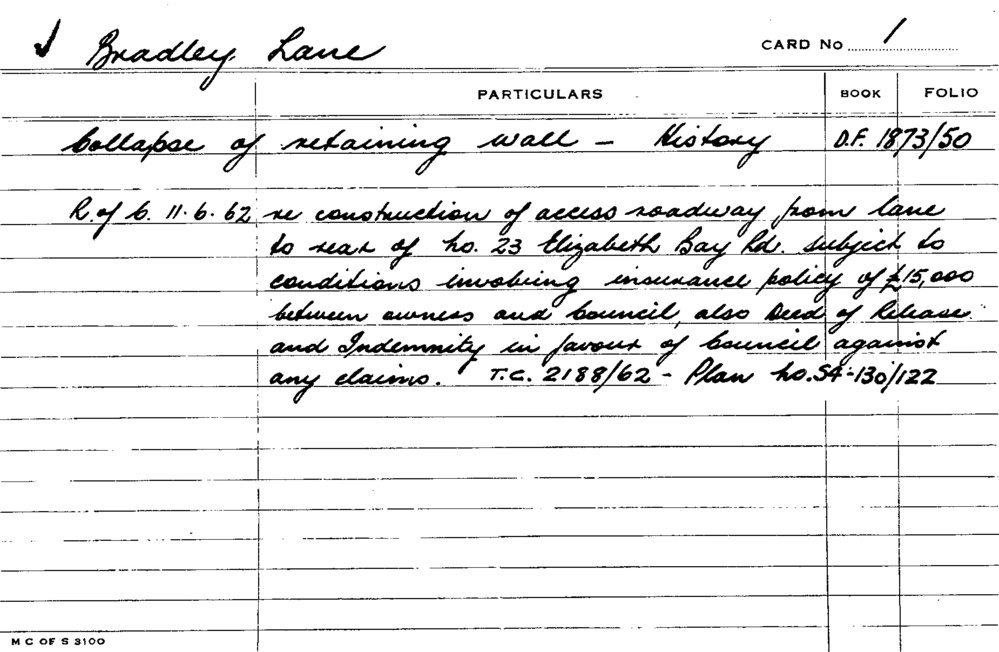 Bradley Lane CARD No 1
PARTICULARS BOOK FOLIO
Collapse of retaining wall - History D.F. 1873/50
R. of C. 11.6.62 re construction of access roadway from lane
to rear of No. 23 Elizabeth Bay Rd. subject to
conditions involving insurance policy of £15,000
between owners and Council, also Deed of Release
and Indemnity in favour of Council against
any claims. T.C. 2188/62 - Plan No. S4-130/122
M C OF S 3100